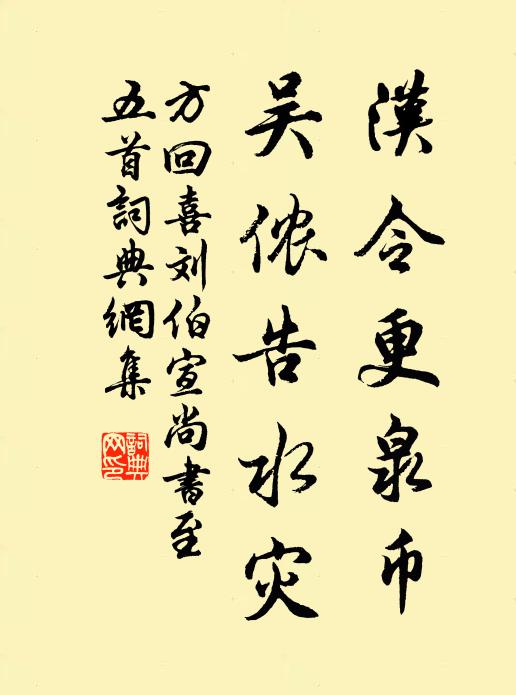 漢令更泉币
吴侬告水灾
方回喜刘伯宣尚書至
五首詞典網集
詞典網印